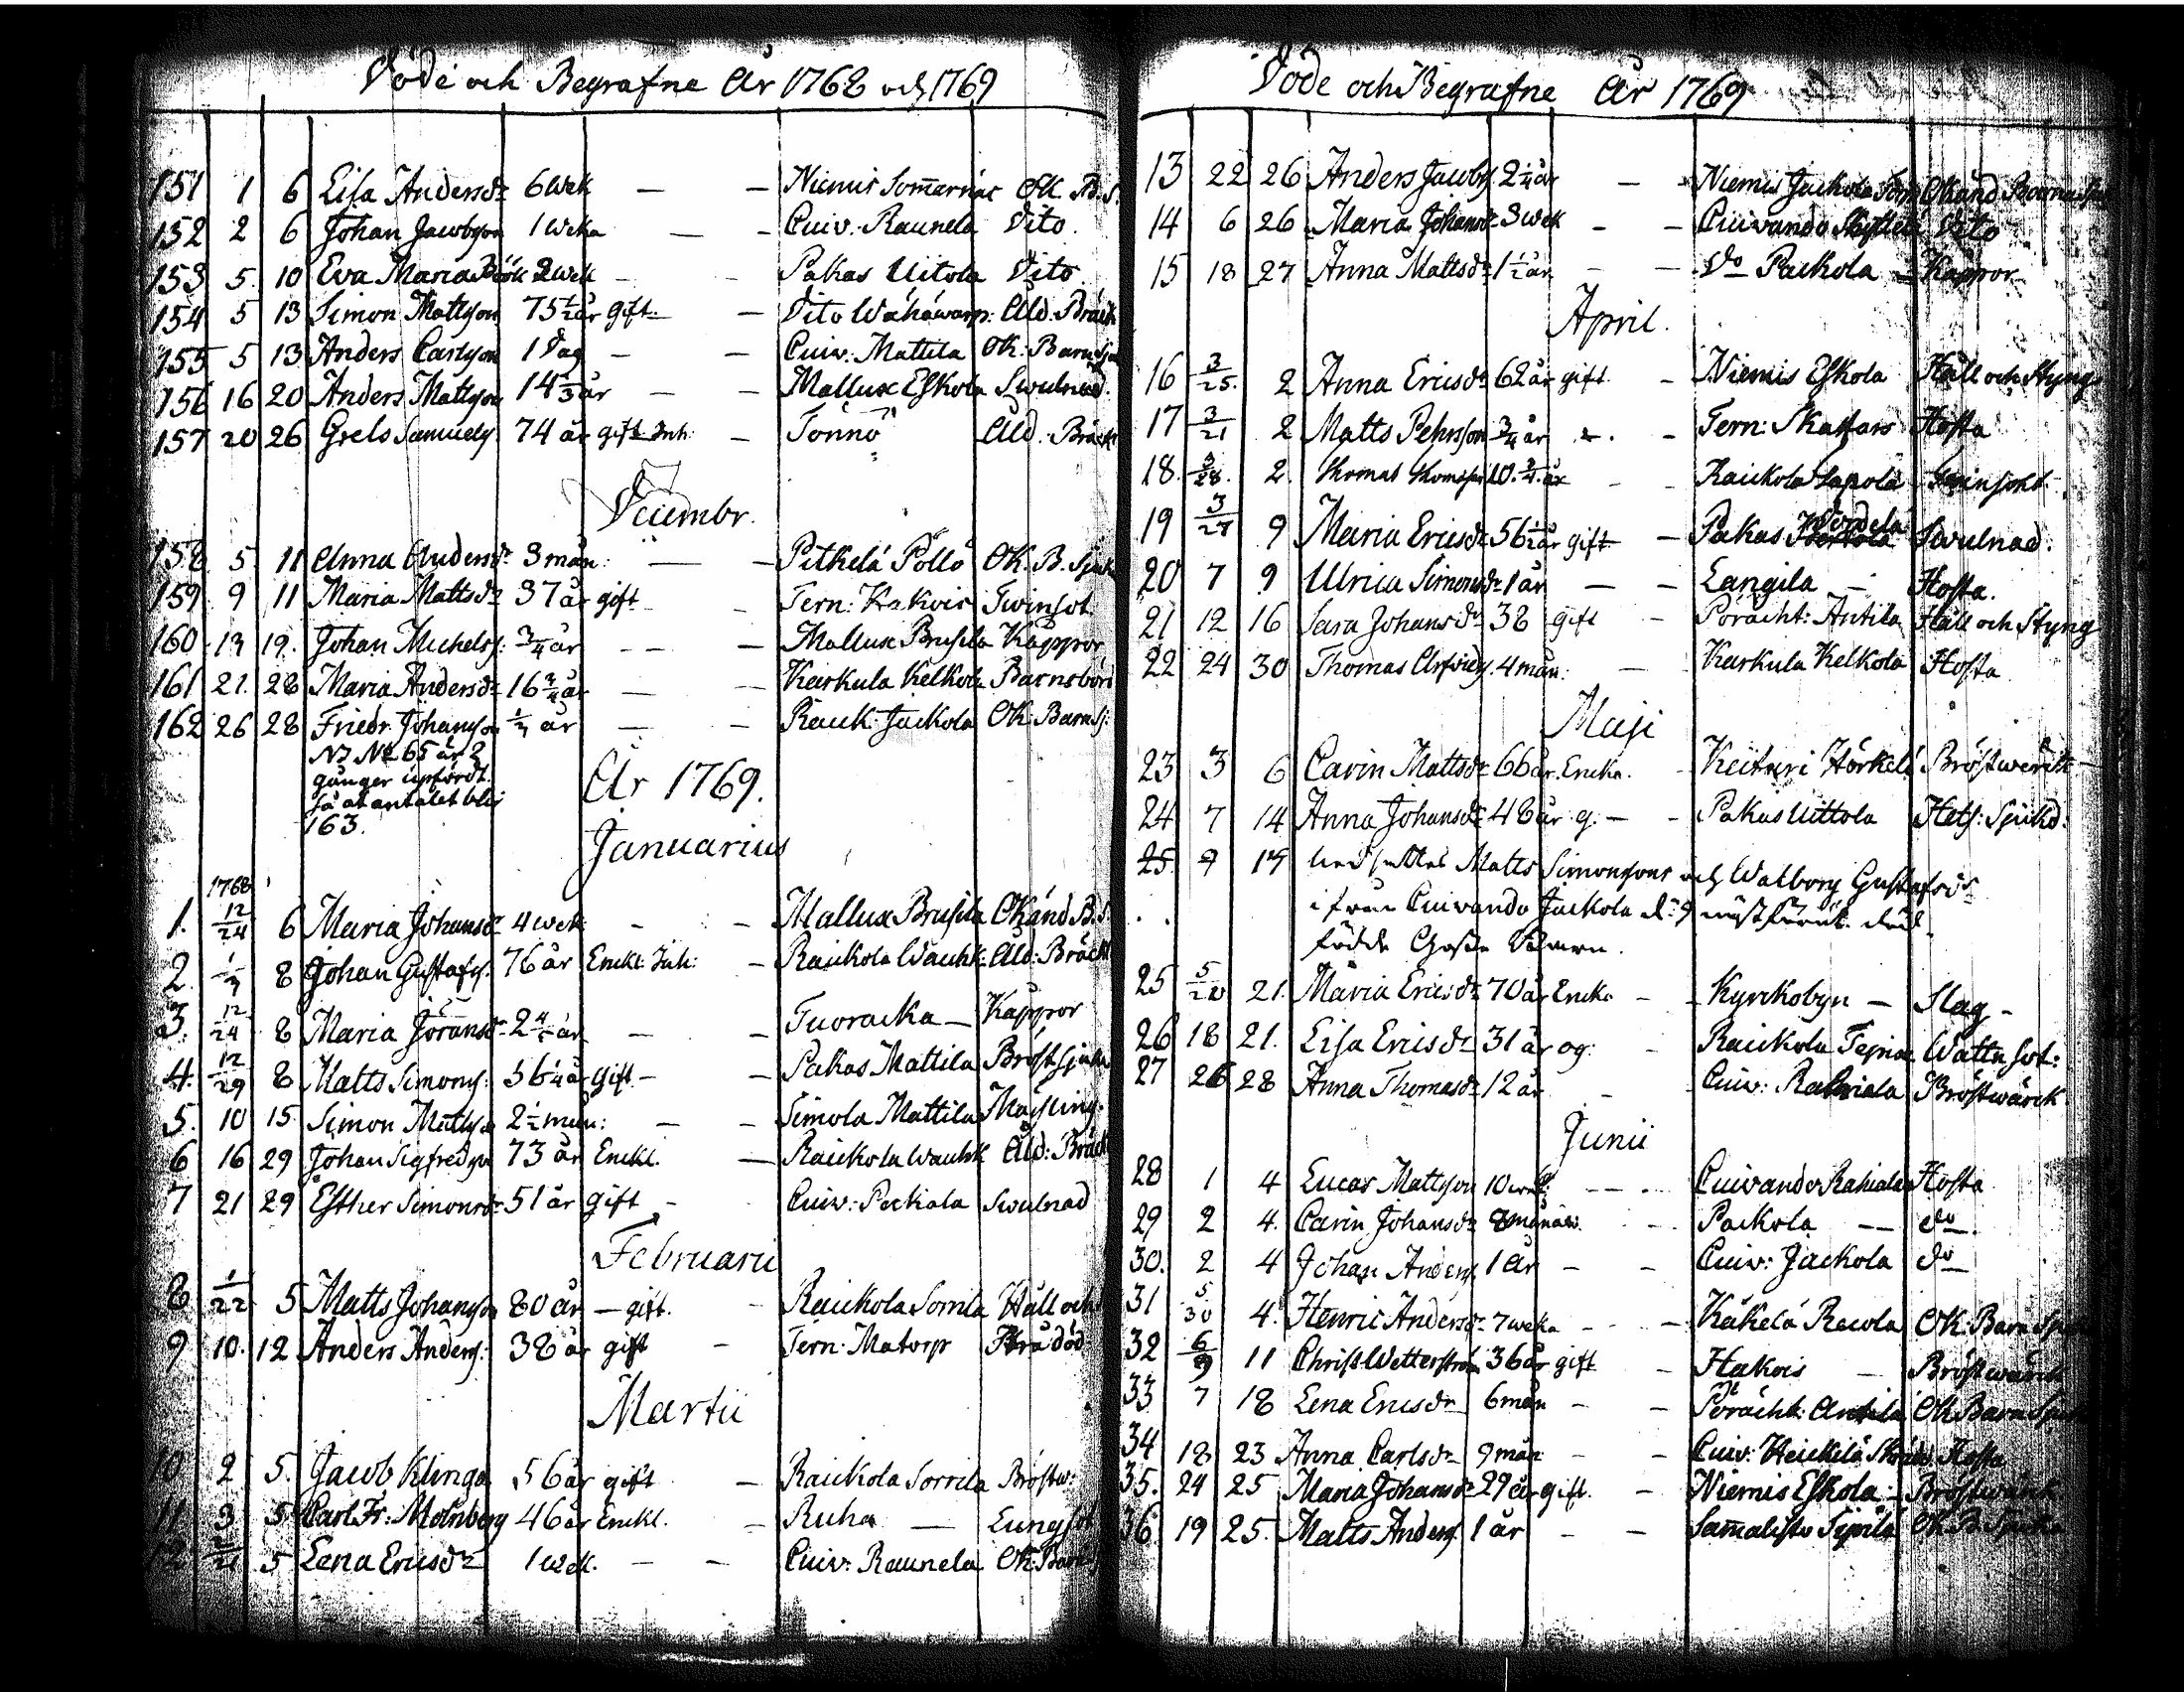 Döde och Begrafne År 1768 och 1769
151 1 6 Lisa Andersdr 6 wek — — Niemis Som̄arnäs Ok. B. S.
152 2 6 Johan Jacobson 1 weka — — Cuiv: Raunela Dito.
153 5. 10 Eva Maria Böök 2 wek — — Pakas Uitola Dito
154 5 13 Simon Mattson 75 1/2 år gift. — Dito Wähäwarp: Åld. Bräck
155 5 13 Anders Carlson 1 Dag — — Cuiv: Mattila Ok: Barnsju
156 16 20 Anders Mattson 14 1/3 år — — Mallux Eskola Swulnad.
157 20 26 Grels Samuels. 74 år gift Inh: — Tönnö Åld: Bräck
Decembr.
158 5. 11 Anna Andersdr 3 mån: — — Pitkelä Pöllö OK. B. Sjuk
159 9 11 Maria Mattsdr 37 år gift — Tern: Kakois Twinsot
160 13 19. Johan Michels: 3/4 år — — Mallux Brusila Kåppor
161 21. 28 Maria Andersdr 16 3/4 år — — Karkula Kelkola Barnsbörd
162 26 28 Friedr. Johanson 1/2 år — — Rauk: Jackola OK: Barnsj:
NB No 65 är 2
gånger upfördt
så at antalet blir
163.
År 1769.
Januarius
1768
1. 12/24 6 Maria Johansdr 4 wek — — Mallux Brusila Okänd B. S.
2. 1/3 8 Johan Gustafs. 76 år Enckl. Inh: — Raukola Wauhk: Åld: Bräckl
3. 12/24 8 Maria Göransdr 2 år — — Tuoracka — Kåppor
4. 12/29 8 Matts Simons: 56 1/4 år gift — — Pakas Mattila Bröstsjuka
5. 10 15. Simon Mattson 2 1/2 mån: — — Simola Mattila Mässling.
6 16 29 Johan Sigfredson 73 år Enckl. — Raukola Wauhk Åld: Bräck
7 21 29 Esther Simonsdr 51 år gift — Cuiv: Peckala Swulnad
Februarii
8 1/22 5 Matts Johanson 80 år — gift. — Raukola Sorrila Håll och
9 10. 12 Anders Anders: 38 år gift — Tern: Matorp Brådöd
Martii
10 2 5. Jacob Klinga 56 år gift — Raukola Sorrila Bröstw:
11 3 5 Carl Fr: Molnberg 46 år Enckl. — Ruha — Lungsot
12 2/21 5 Lena Ericsdr 1 wek. — — Cuiv: Raunela OK Barns
Döde och Begrafne År 1769
13 22 26 Anders Jacobs. 2 1/4 år — — Niemis Jackola Okänd Barnasju
14 6 26 Maria Johansdr 3 wek — — Cuivando Skyttelä Dito
15 18 27 Anna Mattsdr 1 1/2 år — — Do Packola — Kåppor
April.
16 3/25. 2 Anna Ericsdr 62 år gift. — Niemis Eskola Håll och Styng
17 3/21 2 Matts Pehrsson 3/4 år — — Tern: Skaffars Hosta
18. 3/28. 2. Thomas Thomasson 10. 3/4 år — — Raukola Lapola Twinsoht.
19 3/27 9 Maria Ericsdr 56 1/2 år gift — Pakas Wirdelä Swulnad.
20 7 9 Ulrica Simonsdr 1 år — — Langila — Hosta.
21 12 16 Sara Johansdr 38 gift — Porächt: Antila Håll och Styng
22 24 30 Thomas Arfvids. 4 mån: — Karkula Kelkola Hosta
Maji
23 3 6 Carin Mattsdr 66 år. Encka. — Keituri Hörkelä Bröstwerck —
24 7 14 Anna Johansdr 48 år g. — — Pakas Uittola Hets: Sjukd.
25 9 15 nedsattes Matts Simonssons och Walborg Gustafsdr
ifrån Cuivando Jackola d: 9 näst förut död
födde Gosse Barn.
25 5/20 21. Maria Ericsdr 70 år Encka — — Kyrckobyn — Slag —
26 18 21. Lisa Ericsdr 31 år og: — Raukola Teppo Wattusot:
27 26 28 Anna Thomasdr 12 år — Cuiv: Rahiala Bröstwärck
Junii
28 1 4 Lucas Mattson 10 wek — — Cuivando Rahiala Hosta
29 2 4. Carin Johansdr 8 månad. — Packola — do
30. 2 4 Johan Anders. 1 år — — Cuiv: Jackola do
31 5/30 4. Henric Andersdr 7 weka — — Käkelä Recola OK: Barn Sjuk
32 6/9 11 Christ. Wetterström 36 år gift — Hakois — Bröstwärck
33 7 18 Lena Ericsdr 6 mån — — Porächt: Antila OK Barn Sjuk
34 18 23 Anna Carlsdr 9 mån — — Cuiv: Heickilä Hosta
35. 24 25 Maria Johansdr 29 år gift. — Niemis Eskola — Bröstwärck
36 19 25. Matts Anders. 1 år — — Sam̄alisto Sipilä OK. B. Sjuka